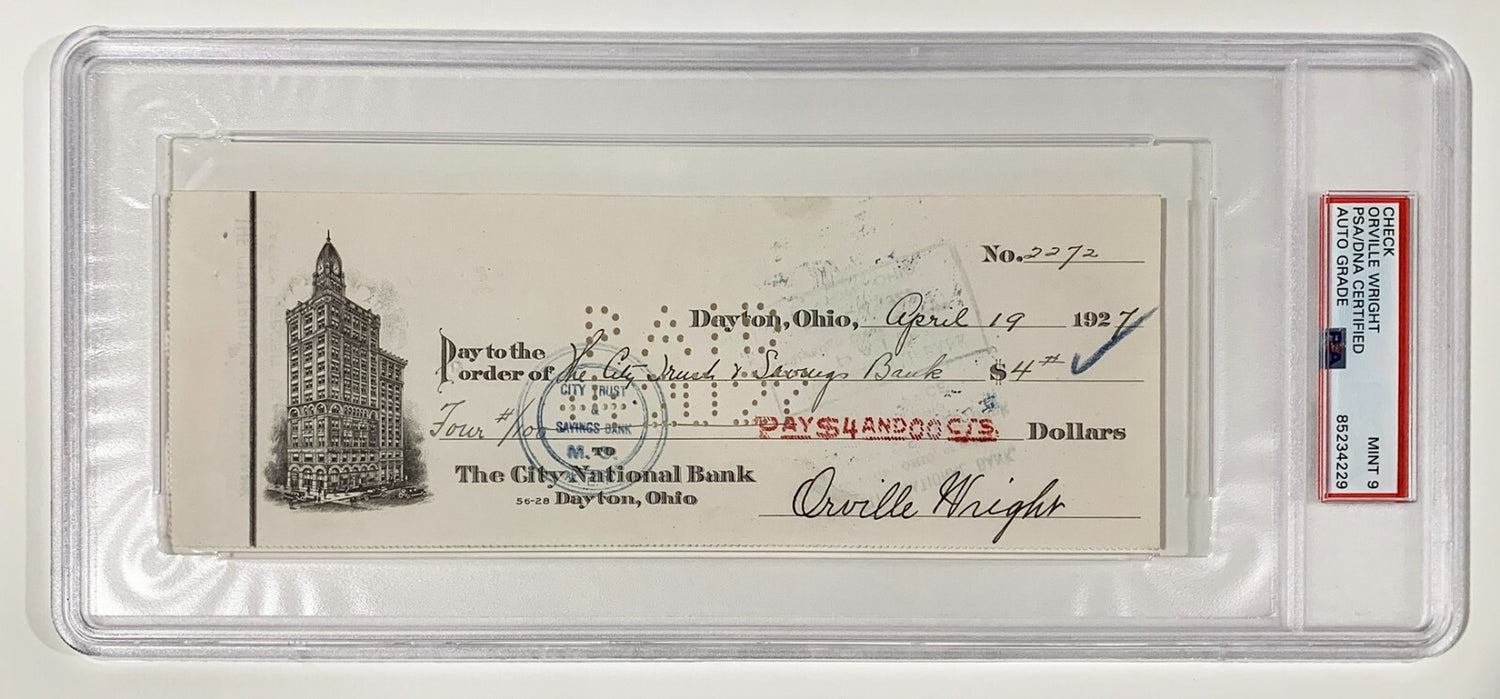 No. 2272
Dayton, Ohio, April 19 1927
Pay to the
order of The City Trust & Savings Bank $4
PAID
Four /100 PAY $4 AND 00 CTS Dollars
CITY TRUST
&
SAVINGS BANK
M. C.
TO
The City National Bank
56-28 Dayton, Ohio
Orville Wright
CHECK
ORVILLE WRIGHT
PSA/DNA CERTIFIED
AUTO GRADE MINT 9
PSA 85234229